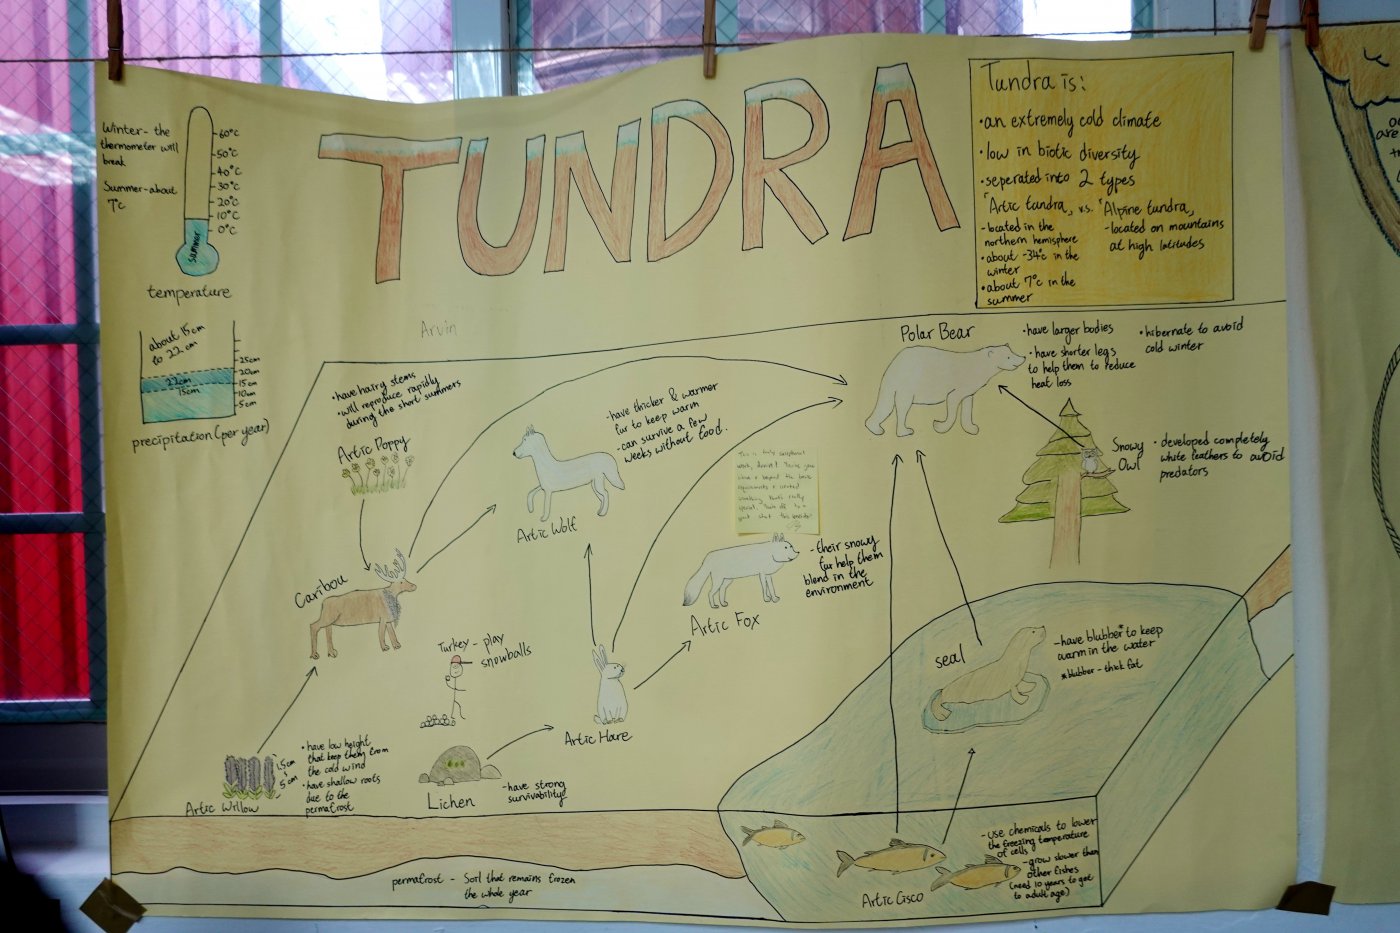 TUNDRA
Winter- the
thermometer will
break
Summer-about
7°c
60°c
50°c
40°c
30°c
20°c
10°c
0°c
summer
temperature
about 15cm
to 22cm
22cm
15cm
25cm
20cm
15cm
10cm
5cm
precipitation (per year)
Tundra is:
•an extremely cold climate
•low in biotic diversity
•seperated into 2 types
「Artic tundra」 v.s. 「Alpine tundra」
-located in the
northern hemisphere
•about -34°c in the
winter
•about 7°c in the
summer
-located on mountains
at high latitudes
Arvin
•have hairy stems
•will reproduce rapidly
during the short summers
Artic Poppy
-have thicker & warmer
fur to keep warm
-can survive a few
weeks without food.
Artic Wolf
Polar Bear
•have larger bodies
•have shorter legs
to help them to reduce
heat loss
•hibernate to avoid
cold winter
Snowy
Owl
•developed completely
white feathers to avoid
predators
This is truly exceptional
Caribou
Turkey - play
snowballs
Artic Fox
-their snowy
fur help them
blend in the
environment
Artic Hare
seal
-have blubber* to keep
warm in the water
*blubber - thick fat
Artic Willow
5cm
•have low height
that keep them from
the cold wind
•have shallow roots
due to the
permafrost
Lichen
-have strong
survivability
permafrost - Soil that remains frozen
the whole year
Artic Cisco
-use chemicals to lower
the freezing temperature
of cells
-grow slower than
other fishes
(need 10 years to get
to adult age)